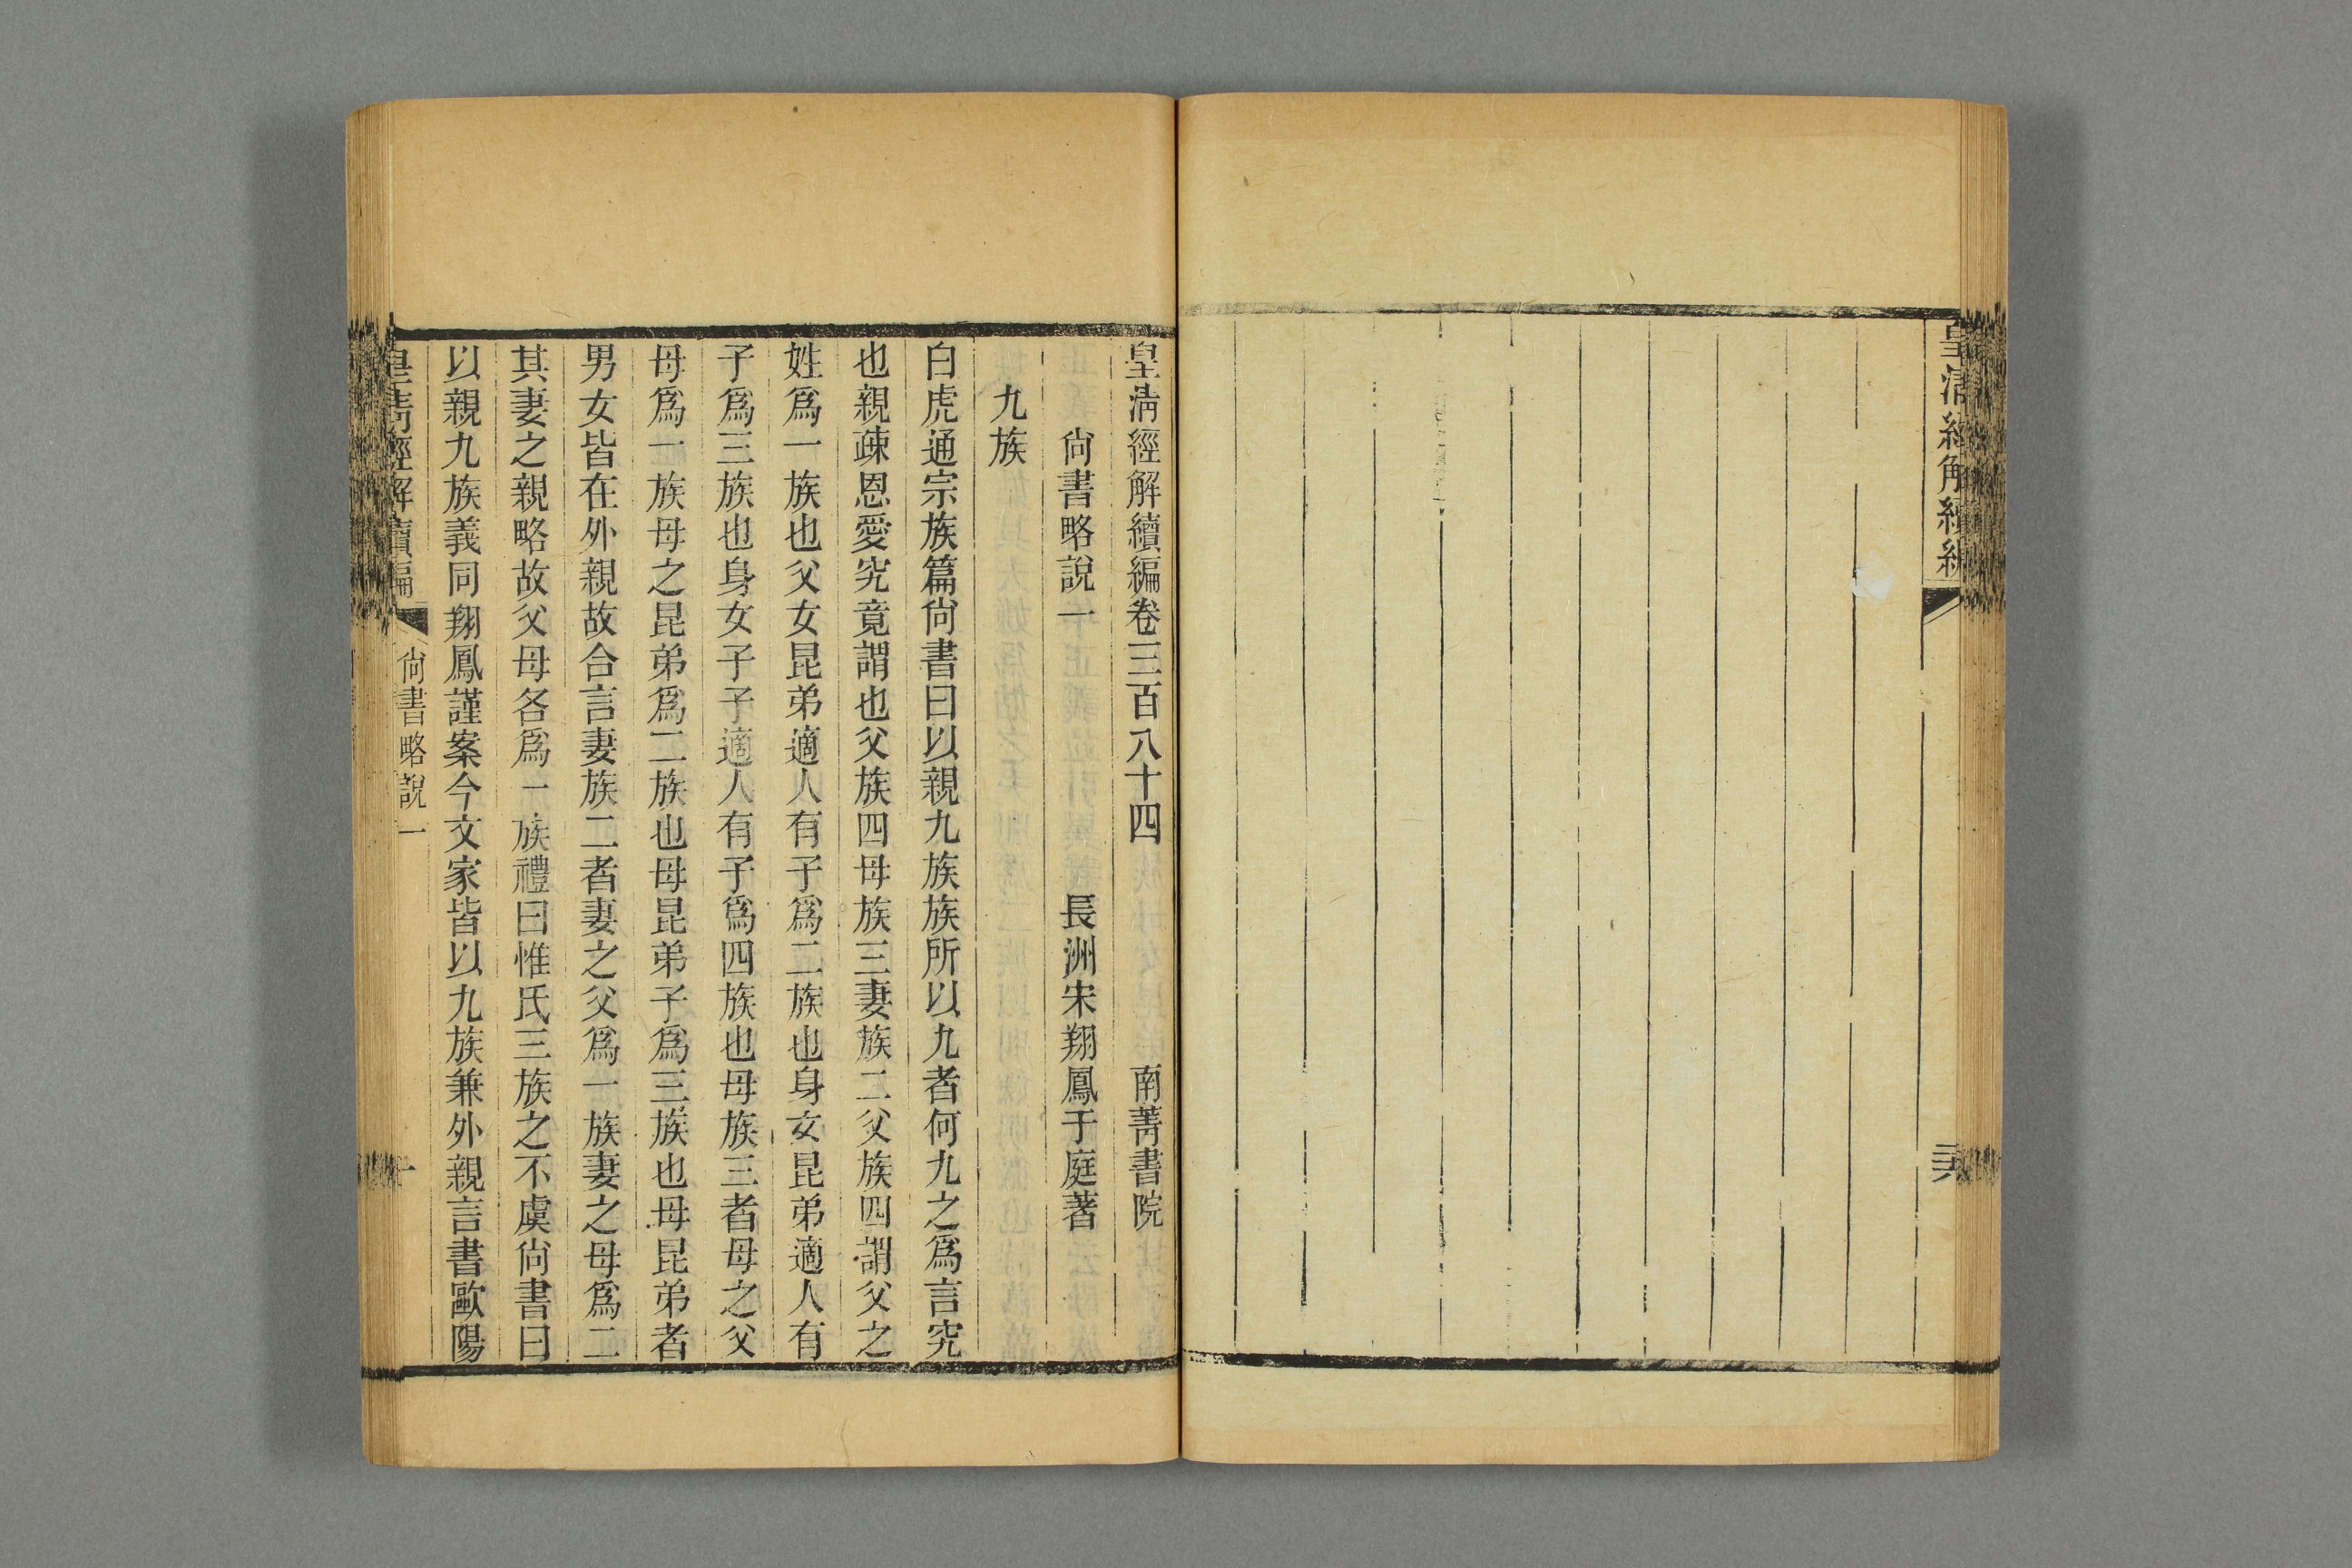 皇清經解續編
皇清經解續編卷三百八十四 南菁書院
尙書略說一 長洲宋翔鳳于庭著
九族
白虎通宗族篇尙書曰以親九族族所以九者何九之爲言究
也親疎恩愛究竟謂也父族四母族三妻族二父族四謂父之
姓爲一族也父女昆弟適人有子爲二族也身女昆弟適人有
子爲三族也身女子子適人有子爲四族也母族三者母之父
母爲一族母之昆弟爲二族也母昆弟子爲三族也母昆弟者
男女皆在外親故合言妻族二者妻之父爲一族妻之母爲二
其妻之親略故父母各爲一族禮曰惟氏三族之不虞尙書曰
以親九族義同翔鳳謹案今文家皆以九族兼外親言書歐陽
皇淸經解續編 尙書略說一 一